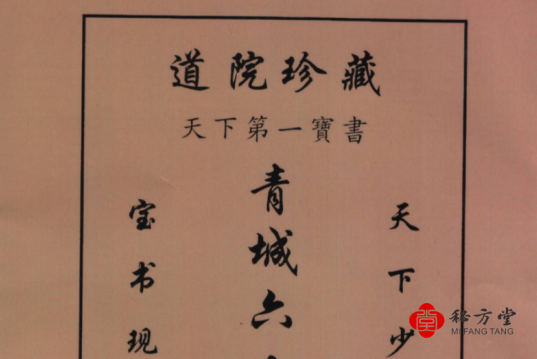 道院珍藏
天下第一寶書
天下少
青城六
宝书现
秘方堂
MI FANG TANG